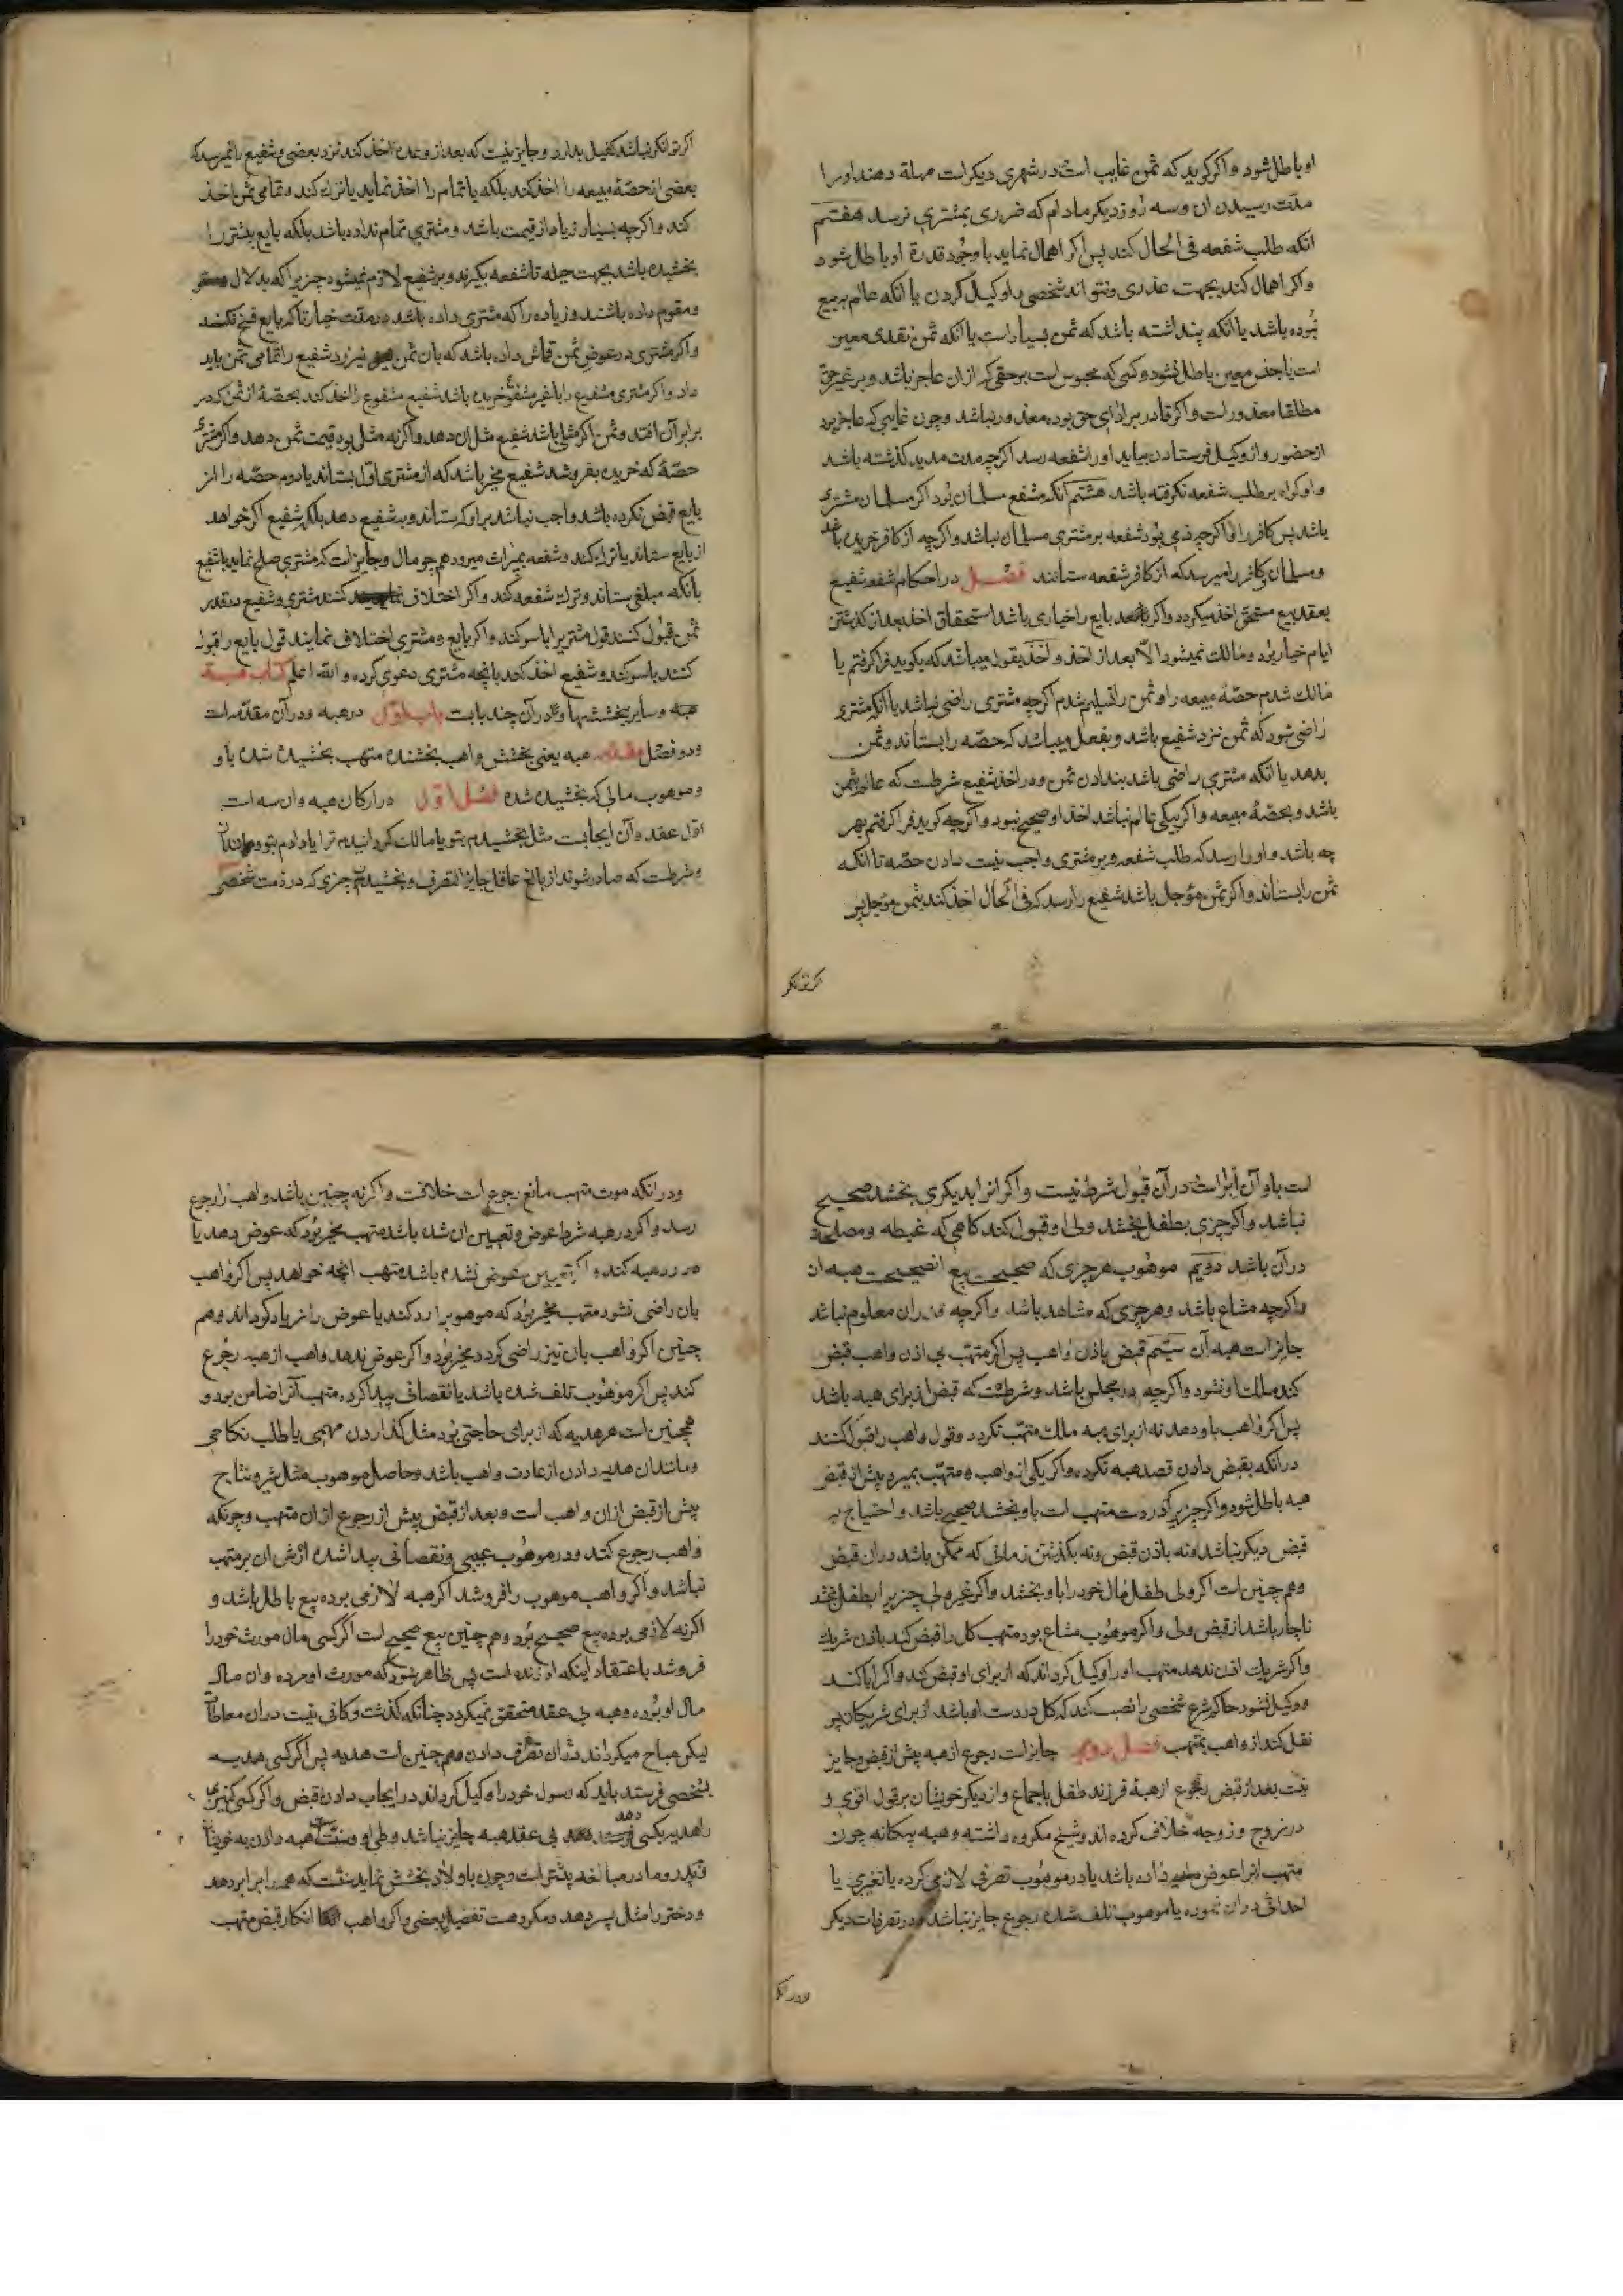 او باطل شود و اکر کوید که ثمن غایب است در شهری دیکر است مهلة دهند او را
مدّت رسیدن ان و سه روز دیکر مادام که ضرری بمشتری نرسد هفتم
انکه طلب شفعه فی الحال کند پس اکر اهمال نماید با وجود قدرة او باطل شود
واکر اهمال کند بجهت عذری و نتواند شخصی را وکیل کردن یا انکه عالم ببیع
نبوده باشد یا انکه پنداشته باشد که ثمن بسیار است یا انکه ثمن نقدی معین
است یا جنس معین باطل نشود و کسی که محبوس است بر حقی که از ان عاجز باشد و بر غیر حق
مطلقا معذور است و اکر قادر بر ادای حق بوده معذور نباشد و چون غایبی که عاجز بود
از حضور و از وکیل فرستادن بیاید او را شفعه رسد اکرچه مدت مدید کذشته باشد
و او کواه بر طلب شفعه نکرفته باشد هشتم انکه شفیع مسلمان بود اکر مسلمان مشتری
باشد پس کافر را اکرچه ذمی بود شفعه بر مشتری مسلمان نباشد و اکرچه از کافر خریده باشد
و مسلمان و کافر را میرسد که از کافر شفعه ستانند فصل در احکام شفعه شفیع
بعقد بیع مستحق اخذ میکردد و اکر بایع را خیاری باشد استحقاق اخذ بعد از کذشتن
ایام خیار بود و مالک نمیشود الا بعد از اخذ و اخذ بقول میباشد که بکوید فرا کرفتم یا
مالک شدم حصّهٔ مبیعه را و ثمن را تسلیم شدم اکرچه مشتری راضی نباشد یا انکه مشتری
راضی شود که ثمن نزد شفیع باشد و بفعل میباشد که حصّه را بستاند و ثمن
بدهد یا انکه مشتری راضی باشد بندادن ثمن و در اخذ شفیع شرطست که عالم بثمن
باشد و بحصّهٔ مبیعه و اکر بیکی عالم نباشد اخذ او صحیح نبود و اکرچه کوید فرا کرفتم بهر
چه باشد و او را رسد که طلب شفعه و بر مشتری واجب نیست دادن حصّه تا انکه
ثمن را بستاند و اکر ثمن مؤجل باشد شفیع را رسد که فی الحال اخذ کند بثمن مؤجل پس
اکر توانکر نباشد کفیل بدارد و جایز نیست که بعد از وعده اخذ کند نزد بعضی و شفیع را نمیرسد که
بعضی از حصّهٔ مبیعه را اخذ کند بلکه یا تمام را اخذ نماید یا ترک کند و تمامی ثمن اخذ
کند و اکرچه بسیار زیاد از قیمت باشد و مشتری تمام نداده باشد بلکه بایع بیشتر را
بخشیده باشد بجهت حیله تا شفعه نکیرند و بر شفیع لازم نمیشود چیزیرا که بدلال
و مقوم داده باشند و زیاده را که مشتری داده باشد در مدت خیار تا که بایع فسخ نکند
واکر مشتری در عوض ثمن قماش داده باشد که بان ثمن نیرزد شفیع را تمامی ثمن باید
داد واکر مشتری مشفوع را با غیر مشفوع خریده باشد شفیع مشفوع را اخذ کند بحصّهٔ از ثمن که در
برابر آن افتد و ثمن اکر مثلی باشد شفیع مثل ان دهد و اکر نه مثل بود قیمت ثمن دهد و اکر مشتری
حصّهٔ که خریده بفروشد شفیع مخیر باشد که از مشتری اوّل بستاند یا دوم حصّه را از
بایع قبض نکرده باشد واجب نباشد بر او که ستاند و بشفیع دهد بلکه شفیع اکر خواهد
از بایع ستاند یا ترک کند و شفعه بمیراث میرود همچو مال و جایز است که مشتری صلح نماید با شفیع
بانکه مبلغی ستاند و ترک شفعه کند و اکر اختلاف کنند مشتری و شفیع در قدر
ثمن قبول کنند قول مشتریرا با سوکند و اکر بایع و مشتری اختلاف نمایند قول بایع را قبول
کنند با سوکند و شفیع اخذ کند بانچه مشتری دعوی کرده و الله اعلم کتاب هبه
هبه و سایر بخششها و در آن چند بابت باب اوّل در هبه و در آن مقدّمه است
و دو فصل مقدّمه هبه یعنی بخشش واهب بخشنده متهب بخشیده شده باو
و موهوب مالی که بخشیده شده فصل اوّل در ارکان هبه و ان سه است
اوّل عقد و آن ایجابست مثل بخشیدم بتو یا مالک کردانیدم ترا یا دادم بتو و مانند آن
و شرطست که صادر شوند از بالغ عاقل جایز التصرف و بخشیدن چیزی که در ذمت شخصی
است باو آن ابراست در آن قبول شرط نیست و اکر انرا بدیکری بخشد صحیح
نباشد و اکر چیزی بطفل بخشد ولی او قبول کند کاهی که غبطه و مصلحت
در آن باشد دویم موهوب هر چیزی که صحیحست بیع ان صحیحست هبه ان
و اکرچه مشاع باشد و هر چیزی که مشاهد باشد و اکرچه قدر ان معلوم نباشد
جایز است هبه آن سیّم قبض باذن واهب پس اکر متهب بی اذن واهب قبض
کند ملک او نشود و اکرچه در مجلس باشد و شرطست که قبض از برای هبه باشد
پس اکر واهب باو دهد نه از برای هبه ملک متهب نکردد و قول واهب را قبول کنند
در انکه بقبض دادن قصد هبه نکرده و اکر یکی از واهب و متهب بمیرد پیش از قبض
هبه باطل شود و اکر چیزیرا که در دست متهب است باو بخشد صحیح باشد و احتیاج به
قبض دیکر نباشد و نه باذن قبض و نه بکذشتن زمانی که ممکن باشد در ان قبض
و هم چنین است اکر ولی طفل مال خود را باو بخشد و اکر غیر ولی چیزیرا بطفل بخشد
ناچار باشد از قبض ولی و اکر موهوب مشاع بود متهب کل را قبض کند باذن شریک
و اکر شریک اذن ندهد متهب او را وکیل کرداند که از برای او قبض کند و اکر ابا کند
و وکیل نشود حاکم شرع شخصی را نصب کند که کل در دست او باشد از برای شریکان پس
نقل کند از واهب بمتهب فصل دویم جایز است رجوع از هبه پیش از قبض و جایز
نیست بعد از قبض رجوع از هبهٔ فرزند طفل باجماع و از دیکر خویشان بر قول اقوی و
در زوج و زوجه خلاف کرده اند و شیخ مکروه داشته و هبه بیکانه چون
متهب انرا عوض داده باشد یا در موهوب تصرفی لازمی کرده یا تغیری یا
احداثی در ان نموده یا موهوب تلف شده رجوع جایز نباشد و در تصرفات دیکر
و در انکه موت متهب مانع رجوع است خلافست و اکر نه چنین باشد واهب را رجوع
رسد و اکر در هبه شرط عوض و تعیین ان شده باشد متهب مخیر بود که عوض دهد یا
رد هبه کند و اکر تعیین عوض نشده باشد متهب انچه خواهد پس اکر واهب
بان راضی نشود متهب مخیر بود که موهوبرا رد کند یا عوض را زیاد کرداند و هم
چنین اکر واهب بان نیز راضی کردد مخیر بود و اکر عوض ندهد واهب از هبه رجوع
کند پس اکر موهوب تلف شده باشد یا نقصانی پیدا کرده متهب آنرا ضامن بود و
همچنین است هر هدیه که از برای حاجتی بود مثل کذاردن مهمی یا طلب نکاحی
و مانند ان هدیه دادن از عادت واهب باشد و حاصل موهوب مثل شیر و نتاج
پیش از قبض از ان واهب است و بعد از قبض پیش از رجوع از ان متهب و چونکه
واهب رجوع کند و در موهوب عیبی و نقصانی پیدا شده ارش ان بر متهب
نباشد و اکر واهب موهوب را فروشد اکر هبه لازمی بوده بیع باطل باشد و
اکر نه لازمی بوده بیع صحیح بود و هم چنین بیع صحیح است اکر کسی مال مورث خود را
فروشد باعتقاد اینکه او زنده است پس ظاهر شود که مورث او مرده و ان مال
مال او بوده و هبه بی عقد متحقق نمیکردد چنانکه کذشت و کافی نیست در ان معاطاة
لیکن مباح میکرداند در ان تصرف دادن و هم چنین است هدیه پس اکر کسی هدیه
بشخصی فرستد باید که رسول خود را وکیل کرداند در ایجاب دادن قبض و اکر کسی کنیزی
را هدیه بکسی دهد بی عقد هبه جایز نباشد وطی او و سنّت هبه دادن به خویشان
و در پدر و مادر مبالغه بیشتر است و چون باولاد بخشش نماید سنّت که همه را برابر دهد
و دختر را مثل پسر دهد و مکروهست تفضیل بعضی و اکر واهب انکار قبض متهب
ودرانکه